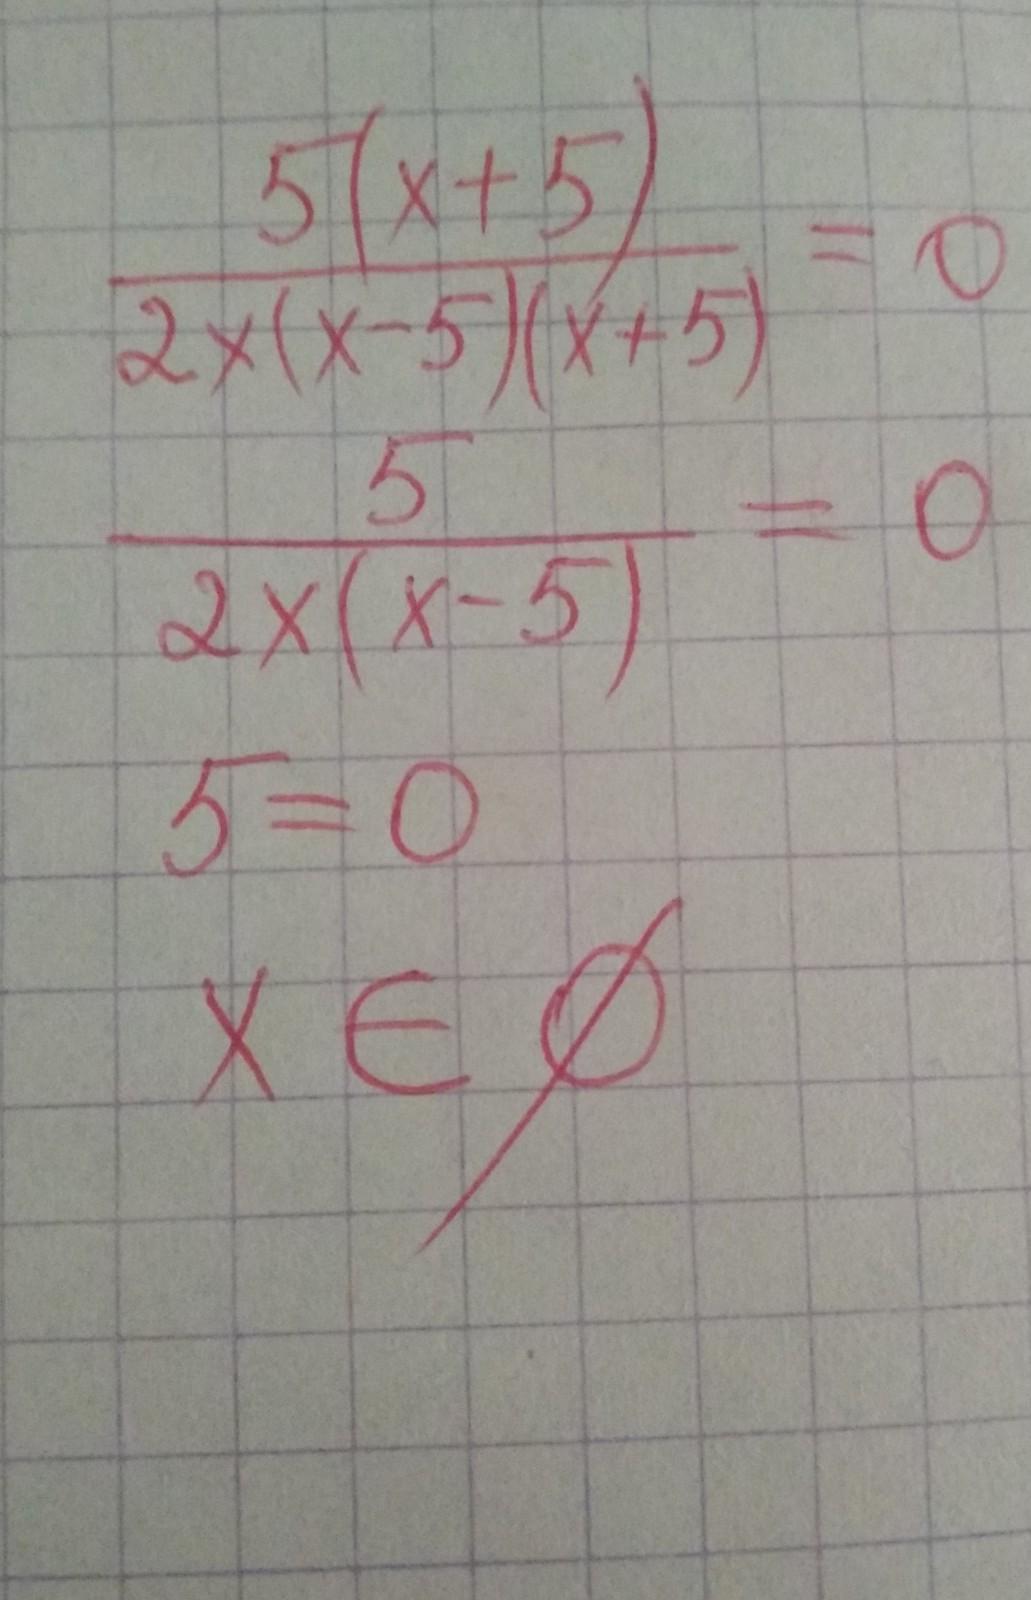 5(x+5)
2x(x-5)(x+5) = 0
5
2x(x-5) = 0
5=0
x ∈ ∅